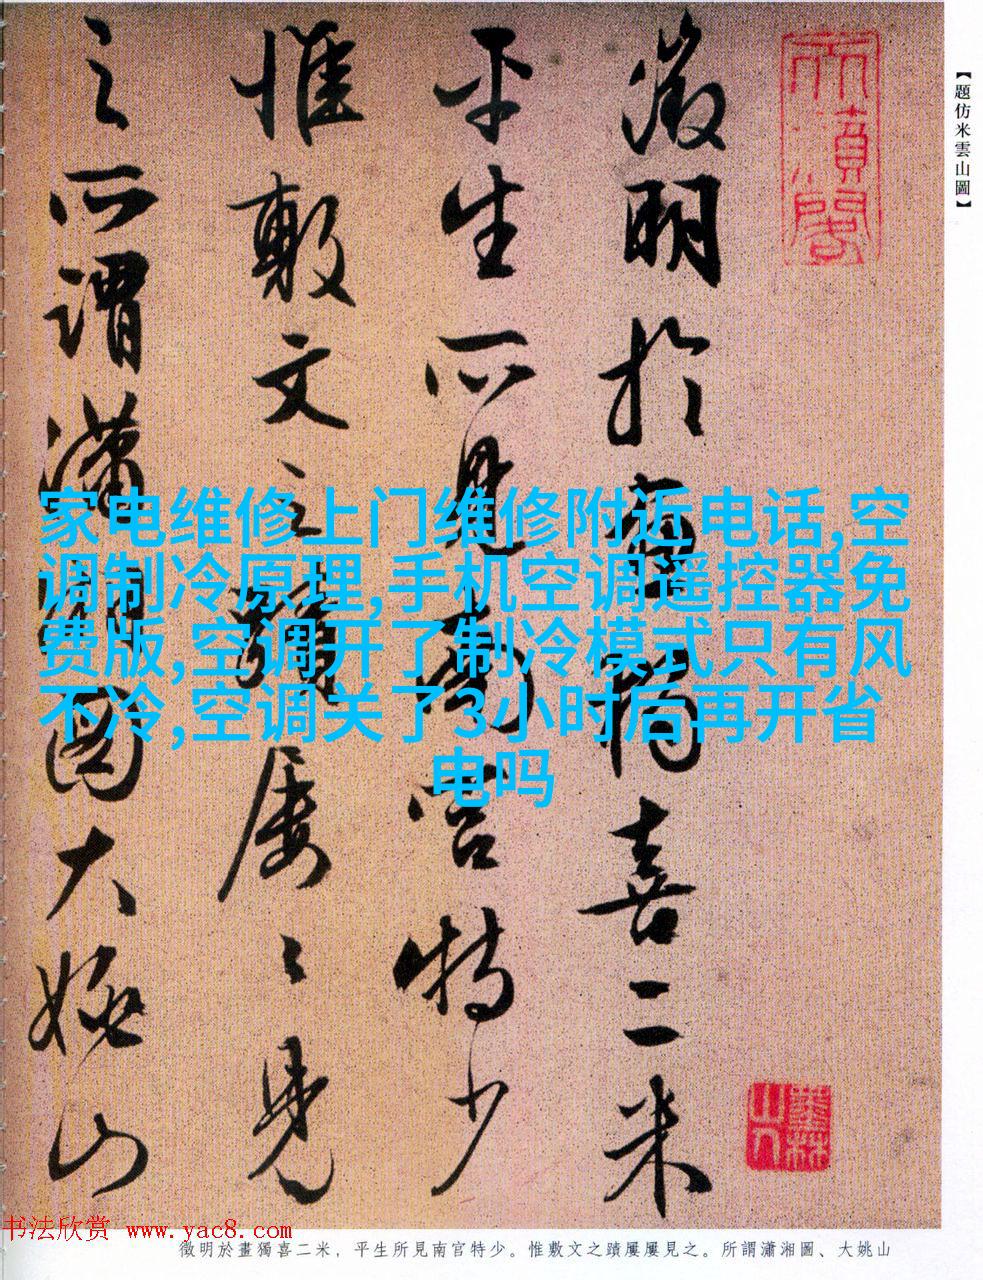 【題仿米雲山圖】
徵明於畫獨喜二米
平生所見南宫特少
惟敷文之蹟屢〻見
之所謂瀟湘圖大姚山
家电维修上门维修附近电话,空
调制冷原理,手机空调遥控器免
费版,空调开了制冷模式只有风
不冷,空调关了3小时后再开省
电吗
书法欣赏 www.yac8.com
徵明於畫獨喜二米，平生所見南官特少。惟敷文之蹟屢屢見之。所謂瀟湘圖、大姚山